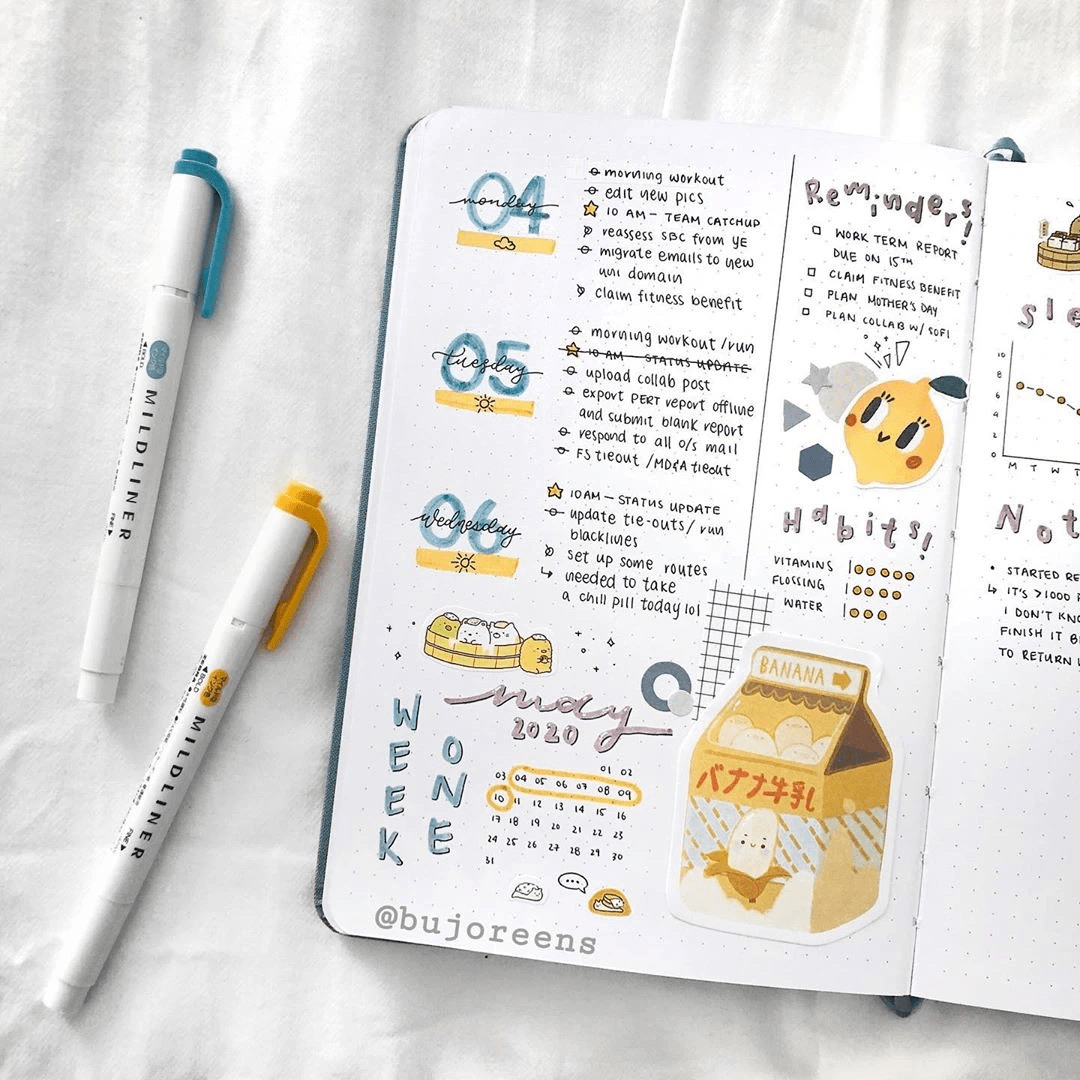 04
monday
morning workout
edit new pics
10 AM – TEAM CATCHUP
reassess SBC from YE
migrate emails to new
uni domain
claim fitness benefit
05
tuesday
morning workout/run
10 AM – STATUS UPDATE
upload collab post
export PERT report offline
and submit blank report
respond to all o/s mail
FS tieout/MD&A tieout
06
Wednesday
10AM – STATUS UPDATE
update tie-outs/run
blacklines
set up some routes
needed to take
a chill pill today lol
WEEK
ONE
may
2020
01 02
03 04 05 06 07 08 09
10 11 12 13 14 15 16
17 18 19 20 21 22 23
24 25 26 27 28 29 30
31
@bujoreens
Reminders!
WORK TERM REPORT
DUE ON 15TH
CLAIM FITNESS BENEFIT
PLAN MOTHER'S DAY
PLAN COLLAB W/ SOFI
Habits!
VITAMINS
FLOSSING
WATER
BANANA
バナナ牛乳
Sle
10
8
6
4
2
0
M T W T
Not
STARTED RE
IT'S >1000 P
I DON'T KNO
FINISH IT B
TO RETURN
BOLD
MILDLINER
FINE
BOLD
MILDLINER
FINE